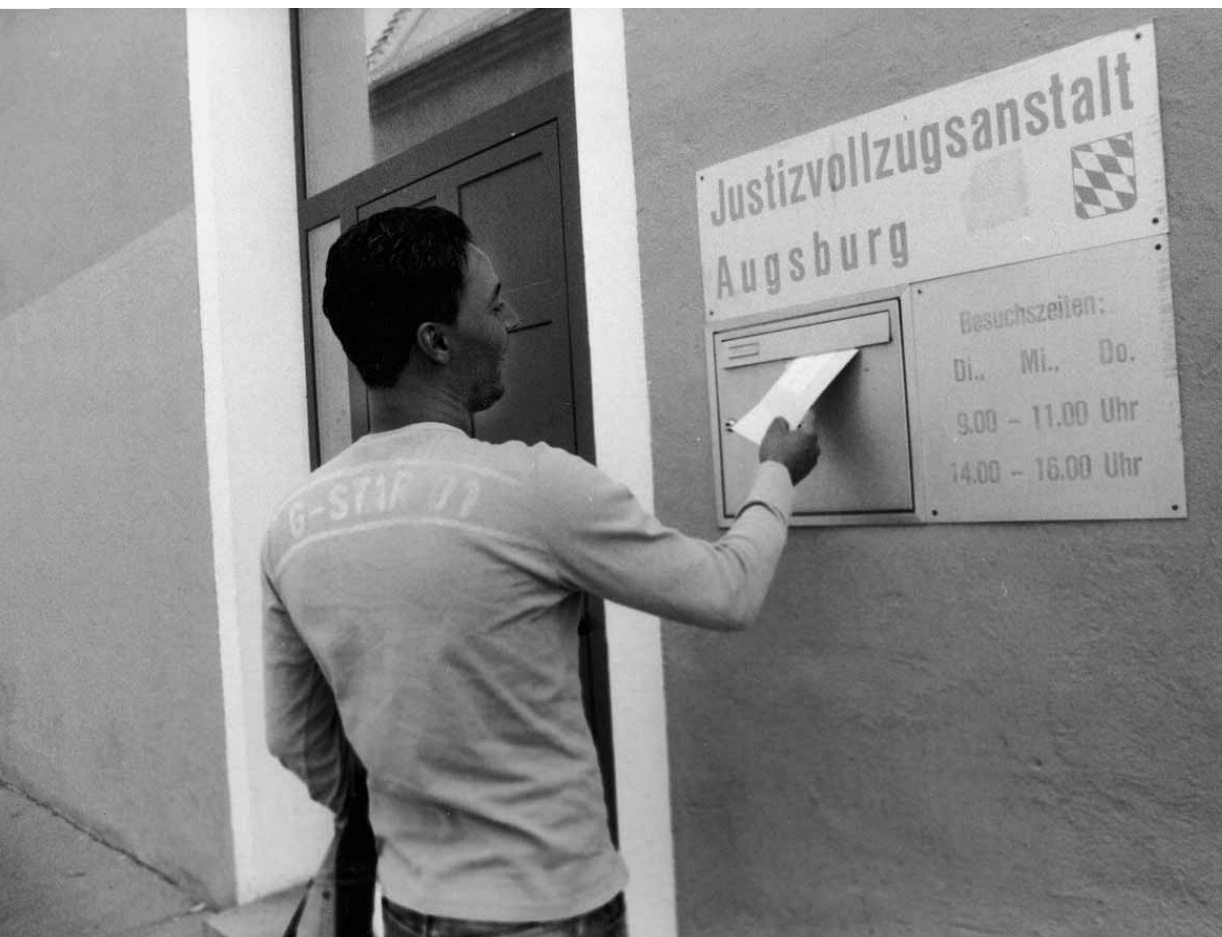 Justizvollzugsanstalt
Augsburg
Besuchszeiten:
Di., Mi., Do.
9.00 - 11.00 Uhr
14.00 - 16.00 Uhr
G-STAR